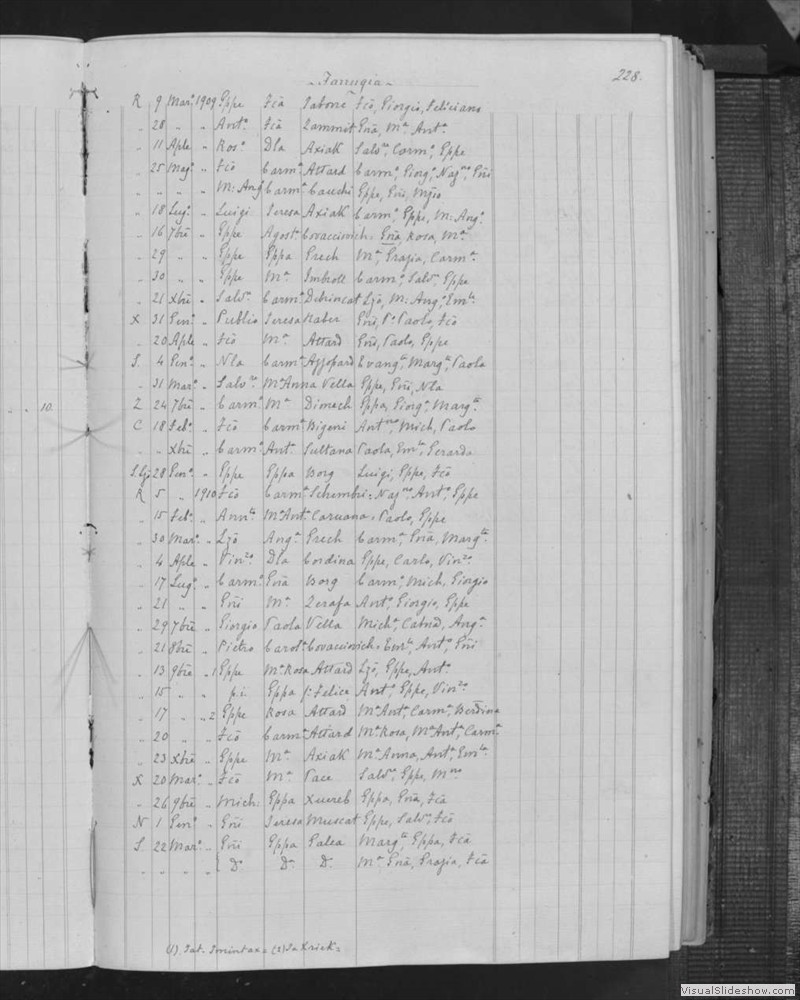 228.
Farrugia
R 9 Mar.º 1909 Gppe Fcã Saborre Fcõ, Giorgio, Feliciano
„ 28 „ „ Ant.º Fcã Zammit Gnã, M.ª Ant.ª
„ 11 Aple „ Ros.º Dla Axiak Salv.re, Carm.º, Gppe
„ 25 Mag.º „ Fcõ Carm.ª Attard Carm.º, Giorg.º, Naz.no, Gñi
„ „ „ „ M: Ang.º Carm.ª Cauchi Gppe, Gñi,
„ 18 Lug.º „ Luigi Teresa Axiak Carm.º, Gppe, M: Ang.º
„ 16 7brẽ „ Gppe Agost.ª Covaccivich: Gnã, Rosa, M.ª
„ 29 „ „ Gppe Gppa Grech M.ª, Grazia, Carm.ª
„ 30 „ „ Gppe M.ª Imbroll Carm.º, Salv.e, Gppe
„ 21 Xbrẽ „ Salv.re Carm.ª Debrincat Lzõ, M: Ang.º, Em.le
X 31 Gen.º „ Publio Teresa Naber Gñi, P.º Paolo, Fcõ
„ 20 Aple „ Fcõ M.ª Attard Gñi, Paolo, Gppe
S. 4 Gen.º „ Nla Carm.ª Azzopard Evang.ta, Marg.ta, Paola
„ 31 Mar.º „ Salv.re M.ª Anna Vella Gppe, Gñi, Nla
10. Z 24 7brẽ „ Carm.º M.ª Dimech Gppa, Giorg.º, Marg.ta
C 18 Feb.º „ Fcõ Carm.ª Bigeni Ant.no, Mich, Paolo
„ „ Xbrẽ „ Carm.º Ant.ª Sultana Paola, Em.le, Gerarda
S. Lzõ 28 Gen.º „ Gppe Gppa Borg Luigi, Gppe, Fcõ
R 5 „ 1910 Fcõ Carm.ª Schembri: Naz.no, Ant.º, Gppe
„ 15 Feb.º „ Ann.to M.ª Ant.ª Caruana. Paolo, Gppe
„ 30 Mar.º „ Lzõ Ang.ª Grech Carm.ª, Gnã, Marg.ta
„ 4 Aple „ Vin.zo Dla Cordina Gppe, Carlo, Vin.zo
„ 17 Lug.º „ Carm.º Gnã Borg Carm.º, Mich, Giorgio
„ 21 „ „ Gñi M.ª Zerafa Ant.º, Giorgio, Gppe
„ 29 7brẽ „ Giorgio Paola Vella Mich.e, Catnã, Ang.ª
„ 21 8brẽ „ Pietro Carol.ª Covaccivich. Em.le, Ant.º, Gñi
„ 13 9brẽ „ 1 Gppe M.ª Rosa Attard Lzõ, Gppe, Ant.º
„ 15 „ „ p.i. Gppa f: Felice Ant.º, Gppe, Vin.zo
„ 17 „ „ 2 Gppe Rosa Attard M.ª Ant.ª, Carm.ª, Berdina
„ 20 „ „ Fcõ Carm.ª Attard M.ª Rosa, M.ª Ant.ª, Carm.ª
„ 23 Xbrẽ „ Gppe M.ª Axiak M.ª Anna, Ant.ª, Em.la
X 20 Mar.º „ Fcõ M.ª Pace Salv.e, Gppe, M.no
„ 26 9brẽ „ Mich: Gppa Xuereb Gppa, Gnã, Fcã
N 1 Gen.º „ Gñi Teresa Muscat Gppe, Salv.e, Fcõ
S. 22 Mar.º „ Gñi Gppa Galea Marg.ta, Gppa, Fcã
„ „ „ „ D.º D.º D.º M.ª Gnã, Grazia, Fcã
(1). Tat- = (2) Ta Xriek =
VisualSlideshow.com